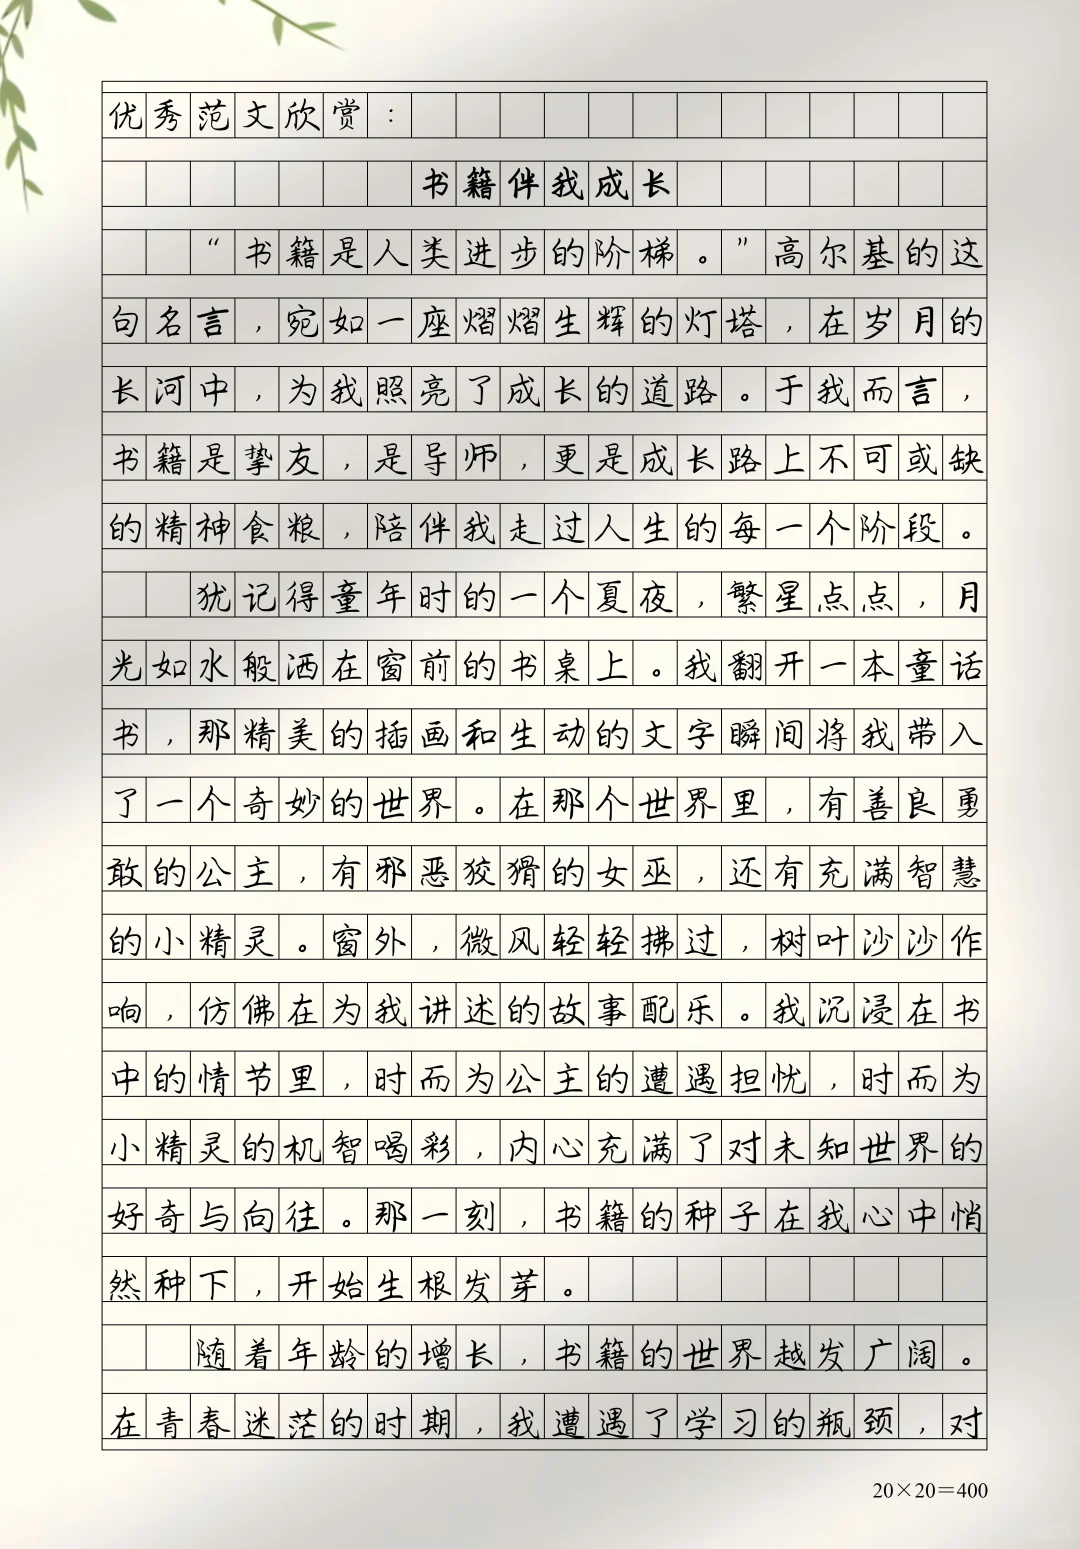 优秀范文欣赏：
书籍伴我成长
“书籍是人类进步的阶梯。”高尔基的这
句名言，宛如一座熠熠生辉的灯塔，在岁月的
长河中，为我照亮了成长的道路。于我而言，
书籍是挚友，是导师，更是成长路上不可或缺
的精神食粮，陪伴我走过人生的每一个阶段。
犹记得童年时的一个夏夜，繁星点点，月
光如水般洒在窗前的书桌上。我翻开一本童话
书，那精美的插画和生动的文字瞬间将我带入
了一个奇妙的世界。在那个世界里，有善良勇
敢的公主，有邪恶狡猾的女巫，还有充满智慧
的小精灵。窗外，微风轻轻拂过，树叶沙沙作
响，仿佛在为我讲述的故事配乐。我沉浸在书
中的情节里，时而为公主的遭遇担忧，时而为
小精灵的机智喝彩，内心充满了对未知世界的
好奇与向往。那一刻，书籍的种子在我心中悄
然种下，开始生根发芽。
随着年龄的增长，书籍的世界越发广阔。
在青春迷茫的时期，我遭遇了学习的瓶颈，对
20×20＝400